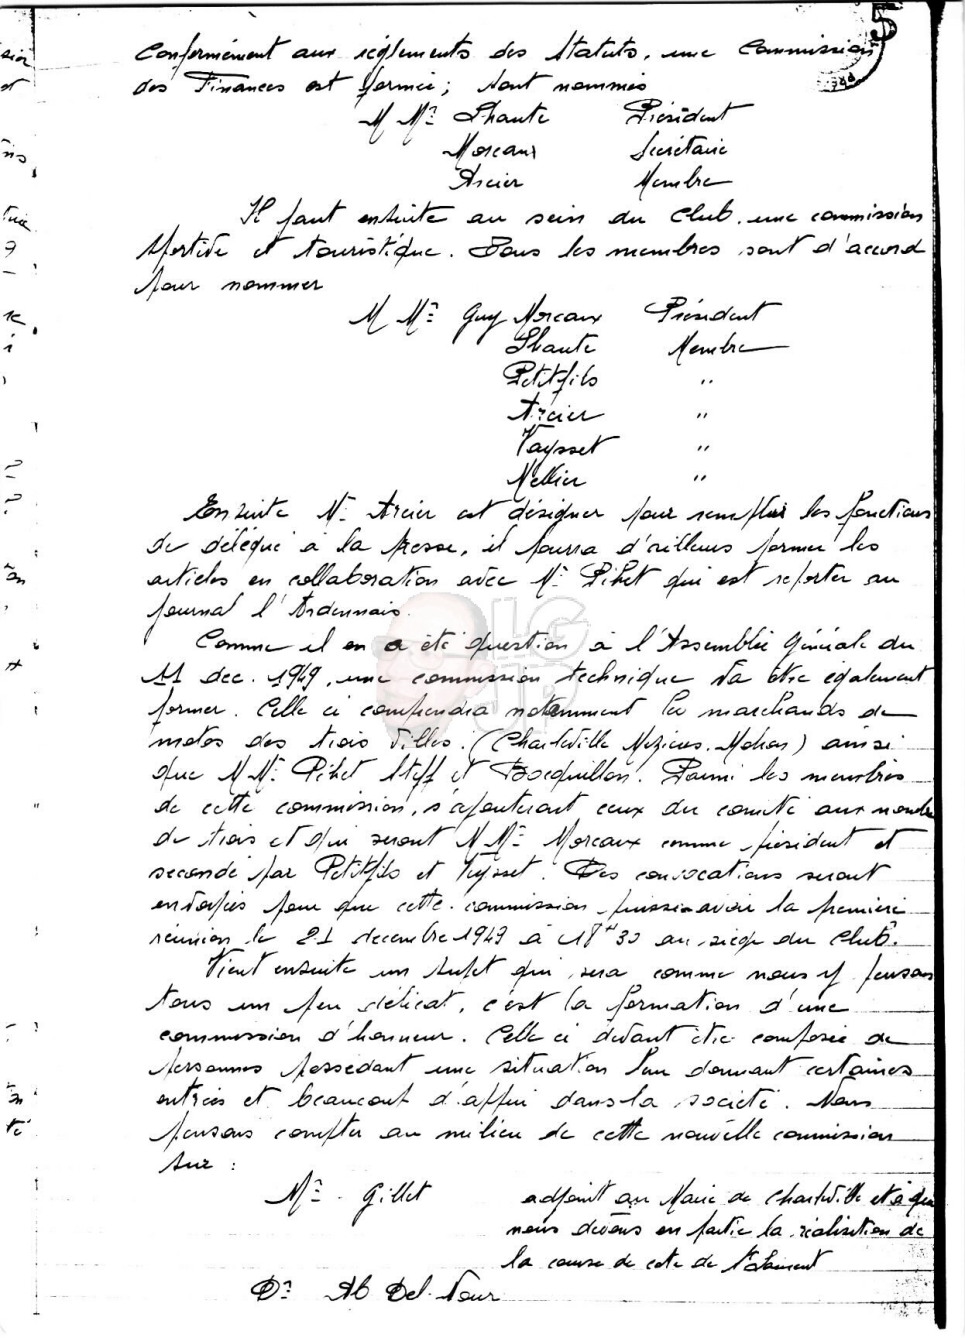 5
Conformément aux règlements des Statuts, une Commission
des Finances est formée; sont nommés
M Mrs Lhaute Président
Moreaux Secrétaire
Arcier Membre
Il faut ensuite au sein du Club, une commission
sportive et touristique. Tous les membres sont d'accord
pour nommer
M Mrs Guy Moreaux Président
Lhaute Membre
Petitfils "
Arcier "
Vaysset "
Mellier "
Ensuite Mr Arcier est désigner pour remplir les fonctions
de délégué à la presse, il pourra d'ailleurs former les
articles en collaboration avec Mr Pihet qui est reporter au
journal l'Ardennais.
Comme il en a été question à l'Assemblée Générale du
11 dec. 1949, une commission technique va être également
former. Celle ci comprendra notamment les marchands de
motos des trois villes. (Charleville Mézières. Mohon) ainsi
que M Mrs Pihet Steff et Bocquillon. Parmi les membres
de cette commission, s'ajouteront ceux du comité aux nombre
de trois et qui seront M Mrs Moreaux comme président et
secondé par Petitfils et Vaysset. Des convocations seront
envoyées pour que cette commission puisse avoir la première
réunion le 21 decembre 1949 à 18H30 au siège du Club.
Vient ensuite un sujet qui sera comme nous y pensons
tous un peu délicat, c'est la formation d'une
commission d'honneur. Celle ci devant être composée de
personnes possédant une situation leur donnant certaines
entrées et beaucout d'appui dans la société. Nous
pensons compter au milieu de cette nouvelle commission
sur :
Mr. Gillet adjoint au Maire de Charleville et à qui
nous devons en partie la réalisation de
la course de cote de St Laurent
Dr Ab Del-Nour
LG
JP